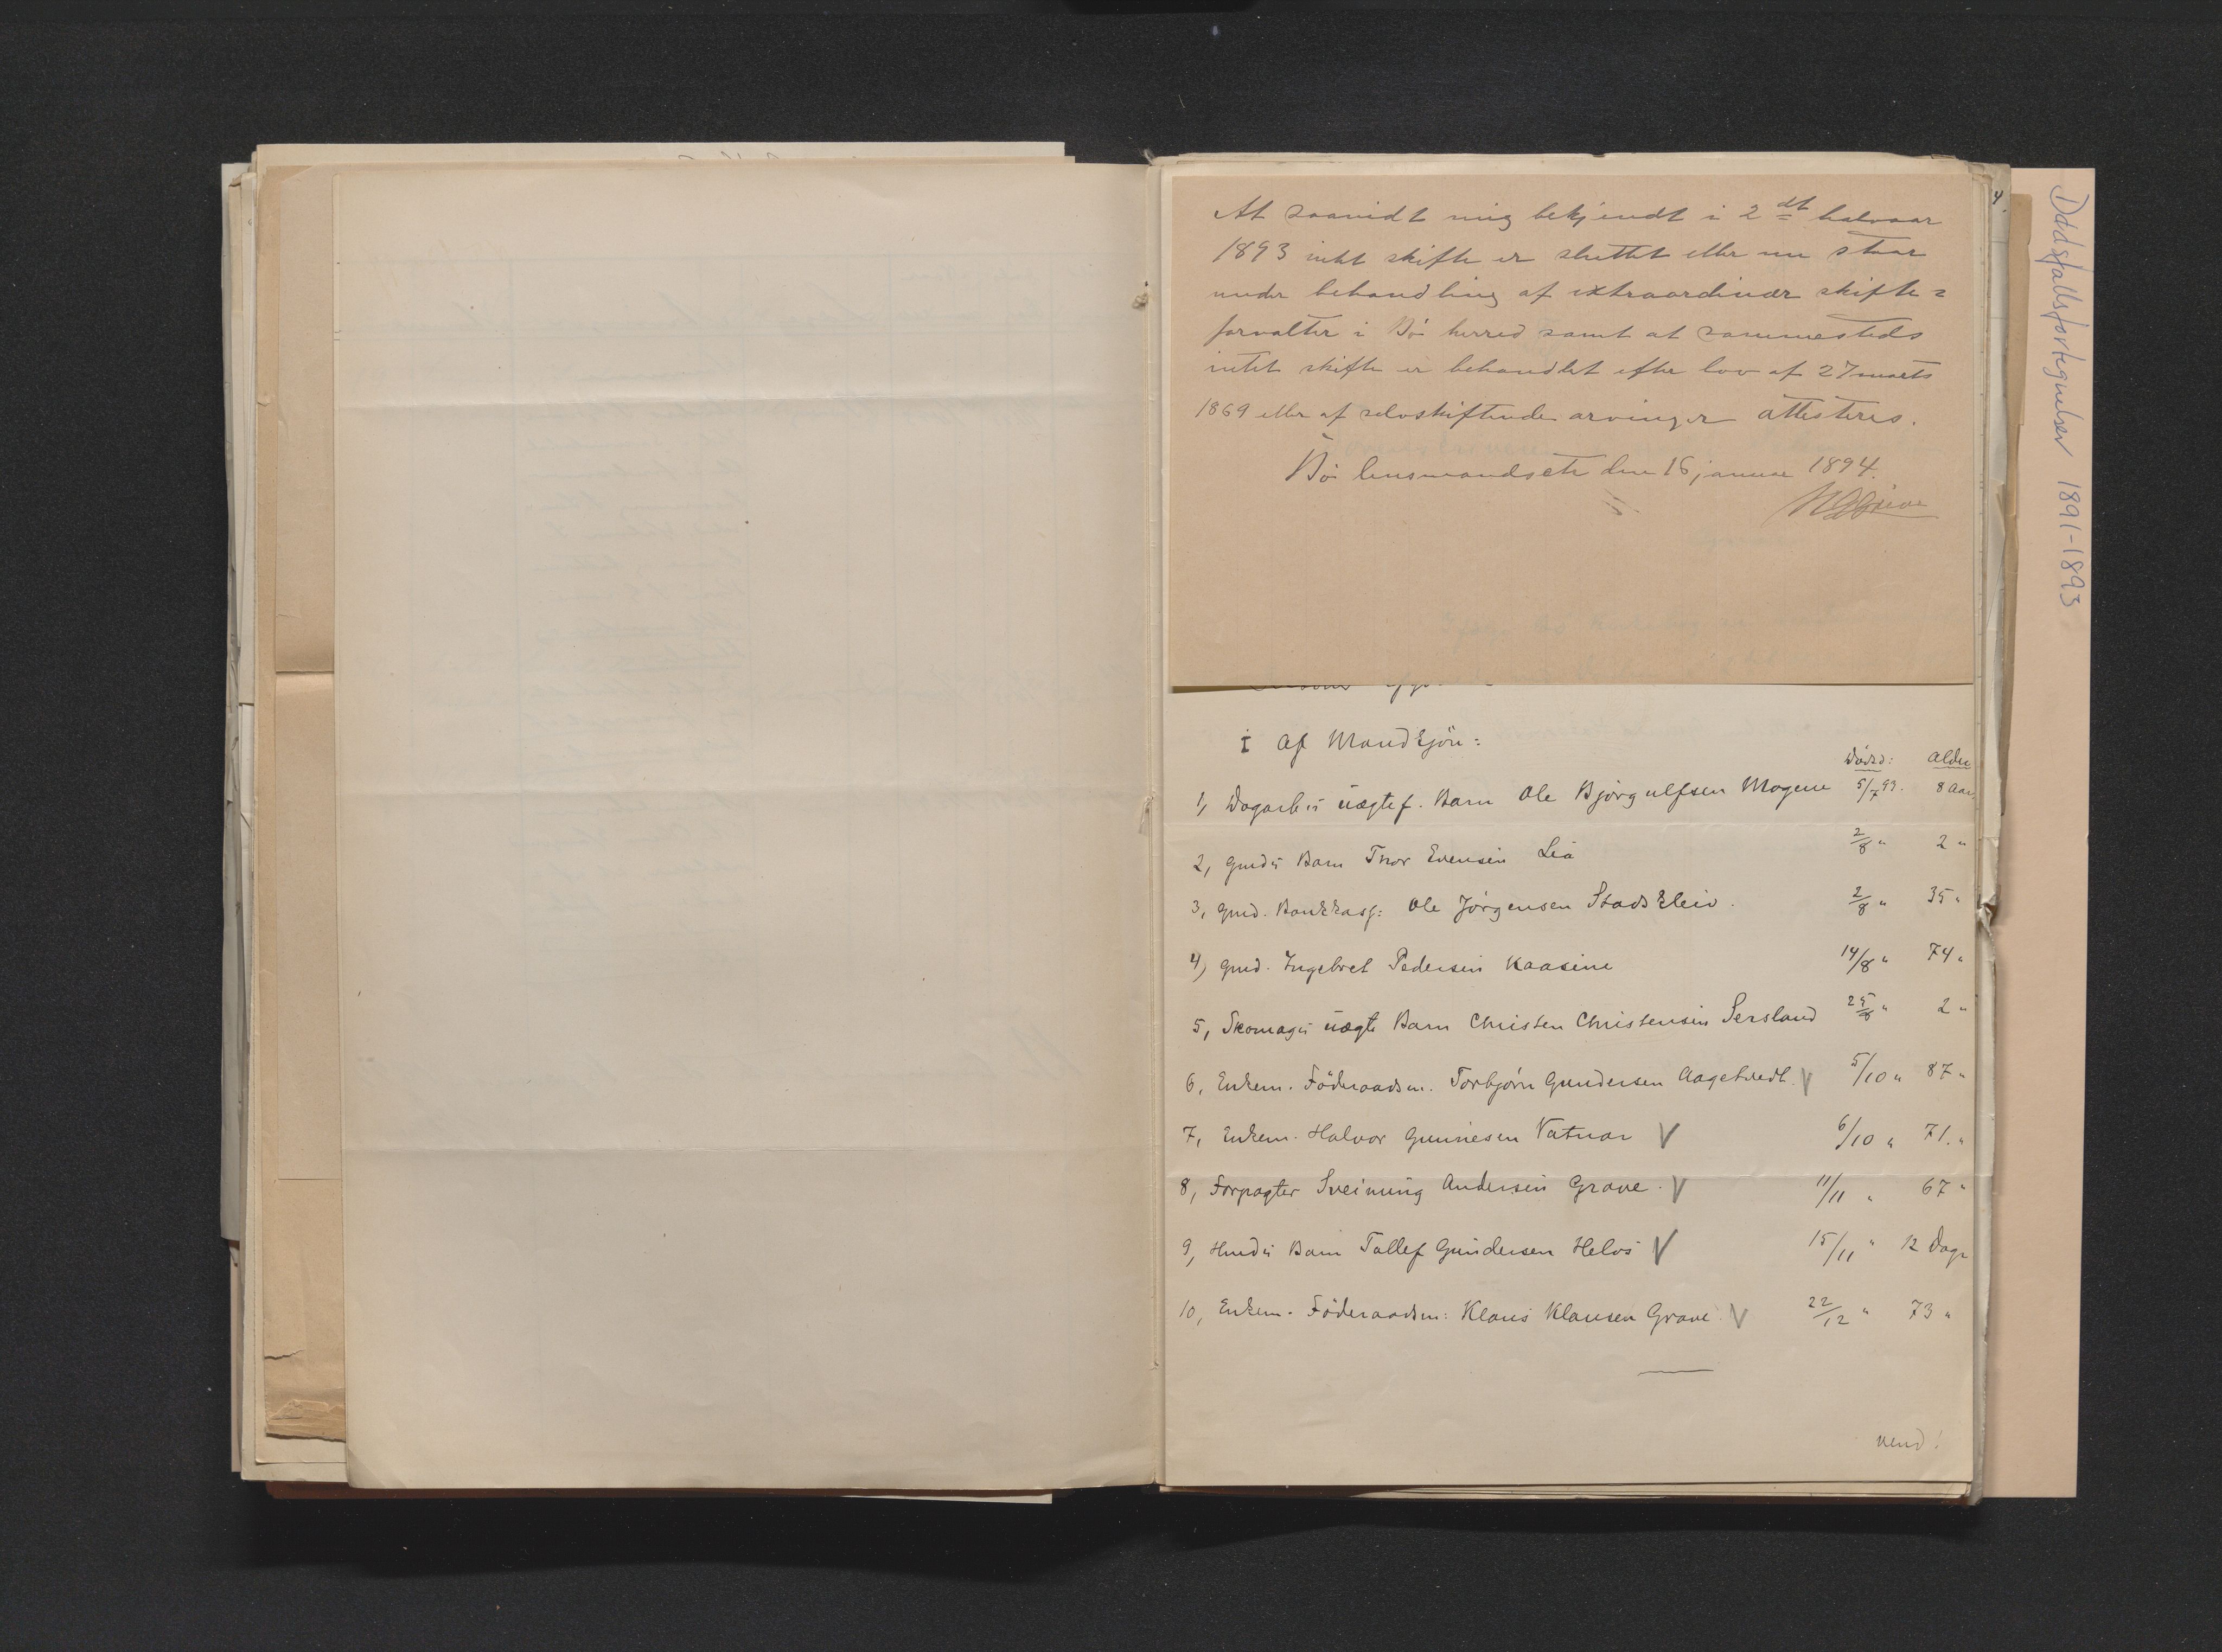 At saavidt mig bekjendt i 2det halvaar
1893 intet skifte er sluttet eller nu staar
under behandling af extraordinær skifte=
forvalter i Bö herred samt at sammesteds
intet skifte er behandlet efter lov af 27 marts
1869 eller af selvskiftende arvinger attesteres.
Bö lensmandsetr den 16 januar 1894.
4.
Dødsfallsfortegnelser 1891-1893
I Af Mandkjön:
Död d: Alder
1, Dagarb:s uægtef. Barn Ole Bjørgulfsen Mogene 5/7 93. 8 Aar
2, Gmds Barn Thor Evensen Lia 2/8 " 2 "
3, Gmd. Bankkass: Ole Jörgensen Stadskleiv. 2/8 " 35 "
4) Gmd. Ingebret Pedersen Kaasene 14/8 " 74 "
5, Skomag:s uægte Barn Christen Christensen Sersland 25/8 " 2 "
6, Enkem. Föderaadsm. Torbjörn Gundersen Aagetvedt. V 5/10 " 87 "
7, Enkem. Halvor Gunnesen Vatnar V 6/10 " 71. "
8, Forpagter Sveinung Andersen Grave. V 11/11 " 67 "
9, Hmds Barn Tallef Gundersen Helos V 15/11 " 12 Dage
10, Enkem. Föderaadsm: Klaus Klausen Grave. V 22/12 " 73 "
vend!